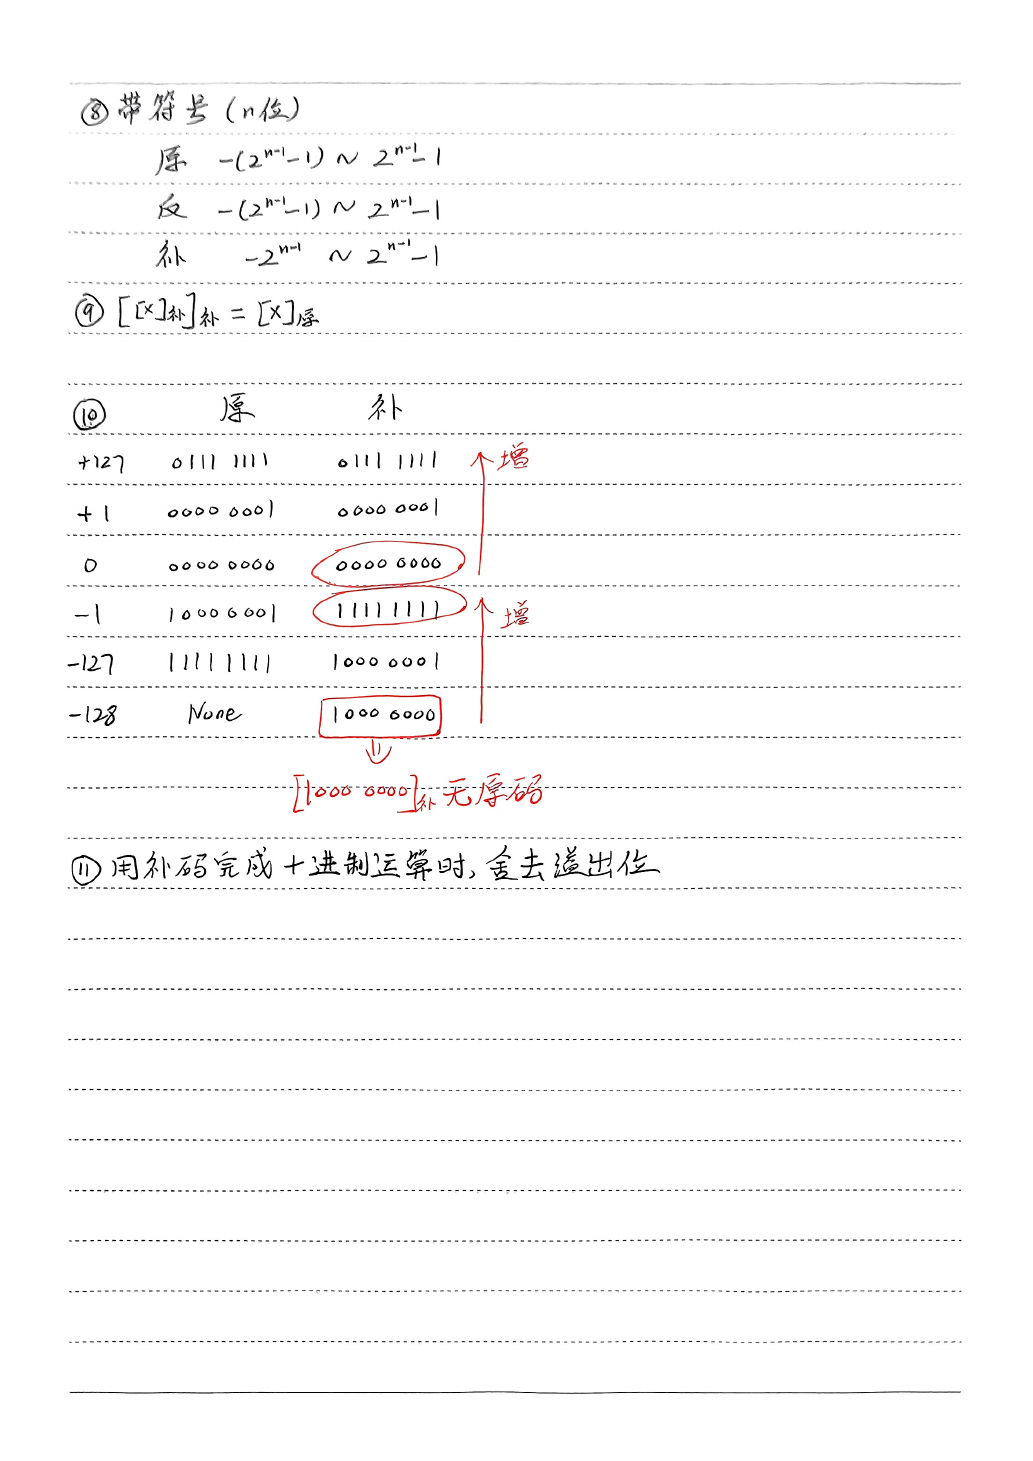 ⑧ 带符号 (n位)
原 -(2ⁿ⁻¹-1) ~ 2ⁿ⁻¹-1
反 -(2ⁿ⁻¹-1) ~ 2ⁿ⁻¹-1
补 -2ⁿ⁻¹ ~ 2ⁿ⁻¹-1
⑨ [[X]补]补 = [X]原
⑩ 原 补
+127 0111 1111 0111 1111 增
+1 0000 0001 0000 0001
0 0000 0000 0000 0000
-1 1000 0001 1111 1111 增
-127 1111 1111 1000 0001
-128 None 1000 0000
[1000 0000]补 无原码
⑪ 用补码完成十进制运算时, 舍去溢出位